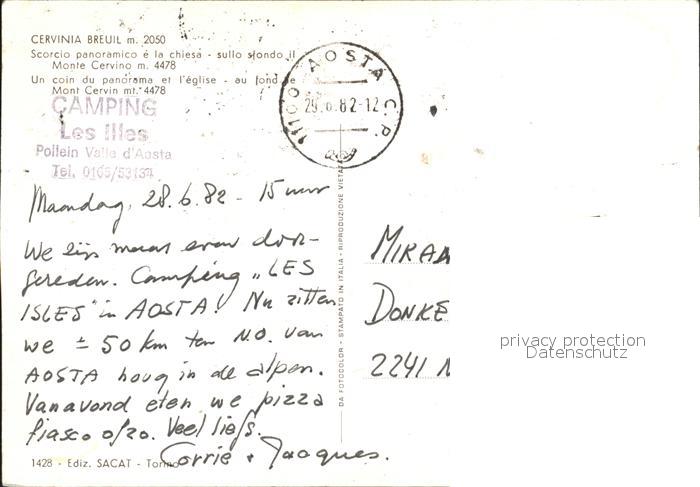 CERVINIA BREUIL m. 2050
Scorcio panoramico e la chiesa - sullo sfondo il
Monte Cervino m. 4478
Un coin du panorama et l'église - au fond le
Mont Cervin mt. 4478
CAMPING
Les Illes
Pollein Valle d'Aosta
Tel. 0165/53134
11100 AOSTA C.P.
29.6.82-12
Maandag, 28.6.82 - 15 uur
We zijn maar even door-
gereden. Camping "LES
ISLES" in AOSTA! Nu zitten
we ± 50 km ten N.O. van
AOSTA hoog in de alpen.
Vanavond eten we pizza
fiasco o/zo. Veel liefs.
Corrie + Jacques.
1428 - Ediz. SACAT - Torino
DA FOTOCOLOR - STAMPATO IN ITALIA - RIPRODUZIONE VIETATA
MIRAN
DONKE
2241 N
privacy protection
Datenschutz